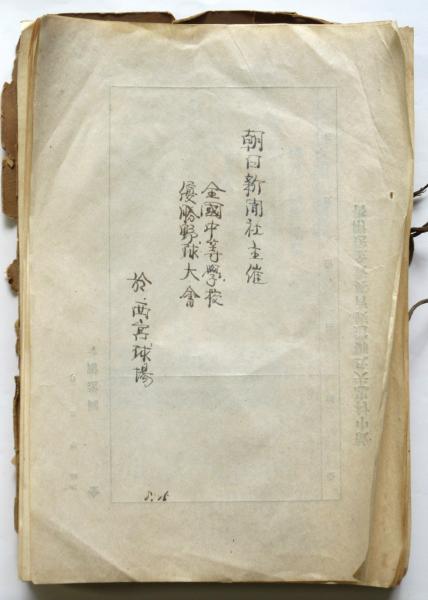 朝日新聞社主催
全國中等學校
優勝野球大會
於・西宮球場
8.15